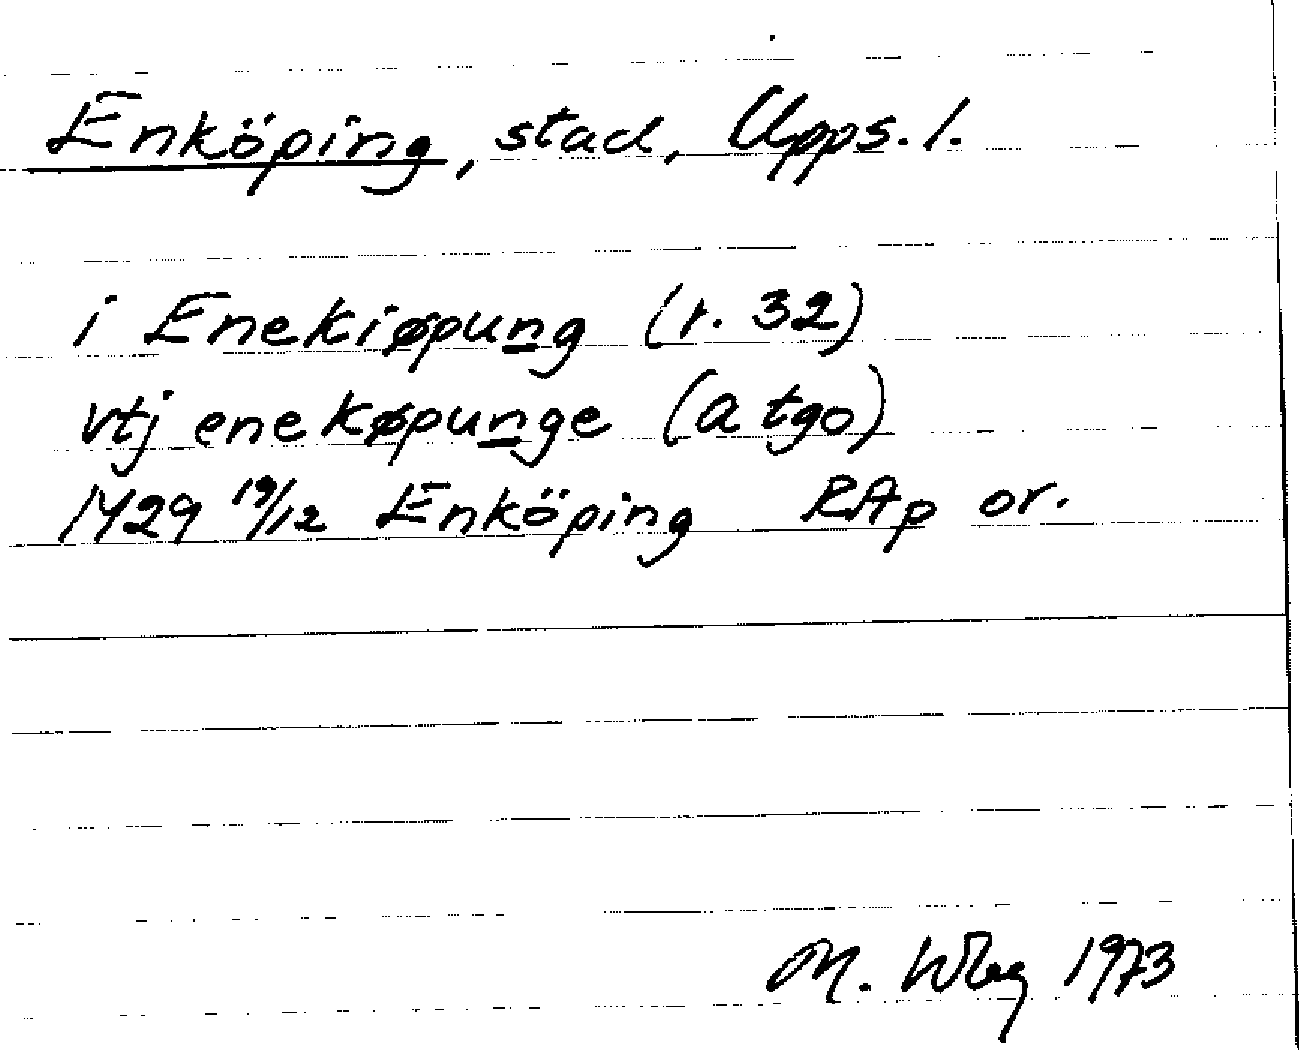 Enköping, stad, Upps. l.
i Enekiøpung (r. 32)
vtj enekøpunge (a tgo)
1429 19/12 Enköping RAp or.
M. Wbg 1973